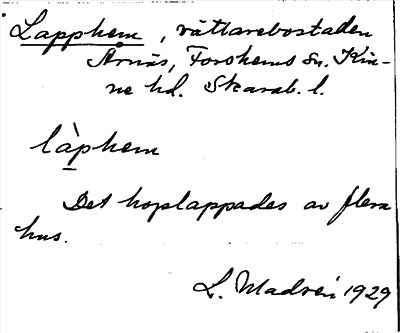 Lapphem, rättarebostaden
Årnäs, Forshems sn. Kin-
ne hd. Skarab. l.
làphem
Det hoplappades av flera
hus.
L. Madsén 1929